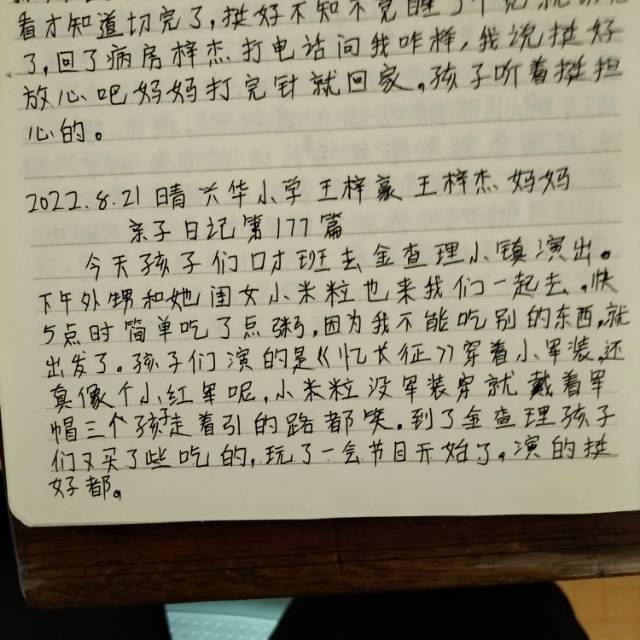 看才知道切完了,挺好不知不觉醒了个
了,回了病房梓杰打电话问我咋样,我说挺好
放心吧妈妈打完针就回家。孩子听着挺担
心的。
2022.8.21晴 兴华小学 王梓豪 王梓杰 妈妈
亲子日记第177篇
今天孩子们口才班去金查理小镇演出。
下午外甥和她闺女小米粒也来我们一起去,快
5点时简单吃了点粥,因为我不能吃别的东西,就
出发了。孩子们演的是《忆长征》穿着小军装,还
真像个小红军呢,小米粒没军装穿就戴着军
帽三个孩子走着引的路都笑。到了金查理孩子
们又买了些吃的,玩了一会节目开始了。演的挺
好都。